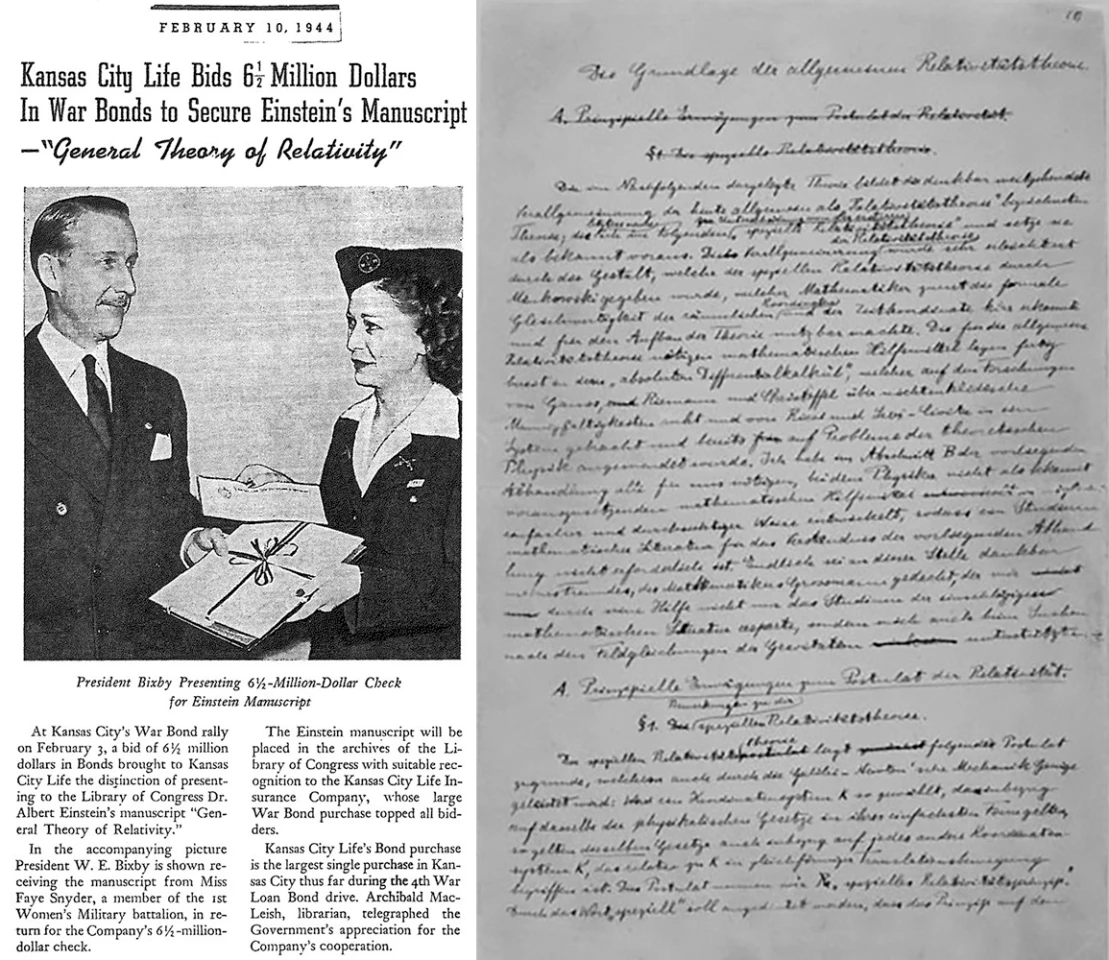 FEBRUARY 10, 1944
Kansas City Life Bids 6½ Million Dollars
In War Bonds to Secure Einstein's Manuscript
—"General Theory of Relativity"
President Bixby Presenting 6½-Million-Dollar Check
for Einstein Manuscript
At Kansas City's War Bond rally
on February 3, a bid of 6½ million
dollars in Bonds brought to Kansas
City Life the distinction of present-
ing to the Library of Congress Dr.
Albert Einstein's manuscript "Gen-
eral Theory of Relativity."
In the accompanying picture
President W. E. Bixby is shown re-
ceiving the manuscript from Miss
Faye Snyder, a member of the 1st
Women's Military battalion, in re-
turn for the Company's 6½-million-
dollar check.
The Einstein manuscript will be
placed in the archives of the Li-
brary of Congress with suitable rec-
ognition to the Kansas City Life In-
surance Company, whose large
War Bond purchase topped all bid-
ders.
Kansas City Life's Bond purchase
is the largest single purchase in Kan-
sas City thus far during the 4th War
Loan Bond drive. Archibald Mac-
Leish, librarian, telegraphed the
Government's appreciation for the
Company's cooperation.
Die Grundlage der allgemeinen Relativitätstheorie.
A. Prinzipielle Erwägungen zum Postulat der Relativität.
§1. Die spezielle Relativitätstheorie.
Die im Nachfolgenden dargelegte Theorie bildet die denkbar weitgehendste
Verallgemeinerung der heute allgemein als „Relativitätstheorie" bezeichneten
Theorie; die
spezielle Relativitätstheorie" und setze sie
der Relativitätstheorie
als bekannt voraus. Die Verallgemeinerung wurde sehr erleichtert
durch die Gestalt, welche der speziellen Relativitätstheorie durch
Minkowski gegeben wurde, welcher Mathematiker zuerst die formale
Koordinaten
Gleichwertigkeit der räumlichen und der Zeitkoordinate klar erkannte
und für den Aufbau der Theorie nutzbar machte. Die für die allgemeine
Relativitätstheorie nötigen mathematischen Hilfsmittel lagen fertig
bereit in dem „absoluten Differentialkalkül", welcher auf den Forschungen
von Gauss, und Riemann und Christoffel über nichteuklidische
Mannigfaltigkeiten ruht und von Ricci und Levi-Civita in ein
System gebracht und bereits auf Probleme der theoretischen
Physik angewendet wurde. Ich habe im Abschnitt B der vorliegenden
Abhandlung alle für uns nötigen, bei dem Physiker nicht als bekannt
vorauszusetzenden mathematischen Hilfsmittel
einfacher und durchsichtiger Weise entwickelt, sodass ein Studium
mathematischer Literatur für das Verständnis der vorliegenden Abhand
lung nicht erforderlich ist. Endlich sei an dieser Stelle dankbar
meines Freundes, des Mathematikers Grossmann gedacht, der mir
durch seine Hilfe nicht nur das Studium der einschlägigen
mathematischen Literatur ersparte, sondern mich auch beim Suchen
nach den Feldgleichungen der Gravitation unterstützte.
A. Prinzipielle Erwägungen zum Postulat der Relativität.
Bemerkungen zu der
§1. Die speziellen Relativitätstheorie.
theorie
Der speziellen Relativitätspostulat liegt folgendes Postulat
zugrunde, welchem auch durch die Galilei-Newton'sche Mechanik Genüge
geleistet wird: Wird ein Koordinatensystem K so gewählt, dass inbezug
auf dasselbe die physikalischen Gesetze in ihrer einfachsten Form gelten,
so gelten dieselben Gesetze auch inbezug auf jedes andere Koordinaten-
system K', das relativ zu K in gleichförmiger Translationsbewegung
begriffen ist. Dies Postulat nennen wir „spezielles Relativitätsprinzip".
Durch das Wort „speziell" soll angedeutet werden, dass das Prinzip auf den